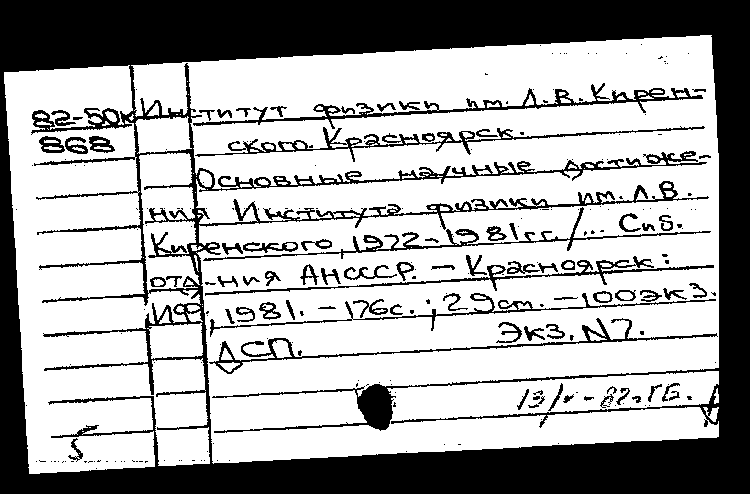 82-50к Институт физики им. Л.В. Кирен-
868 ского. Красноярск.
Основные научные достиже-
ния Института физики им. Л.В.
Киренского, 1972-1981 гг. /... Сиб.
отд-ния АН СССР. – Красноярск:
ИФ, 1981. – 176с.; 29см. – 100экз.
ДСП. Экз. N7.
13/v-82г. ГБ.
5